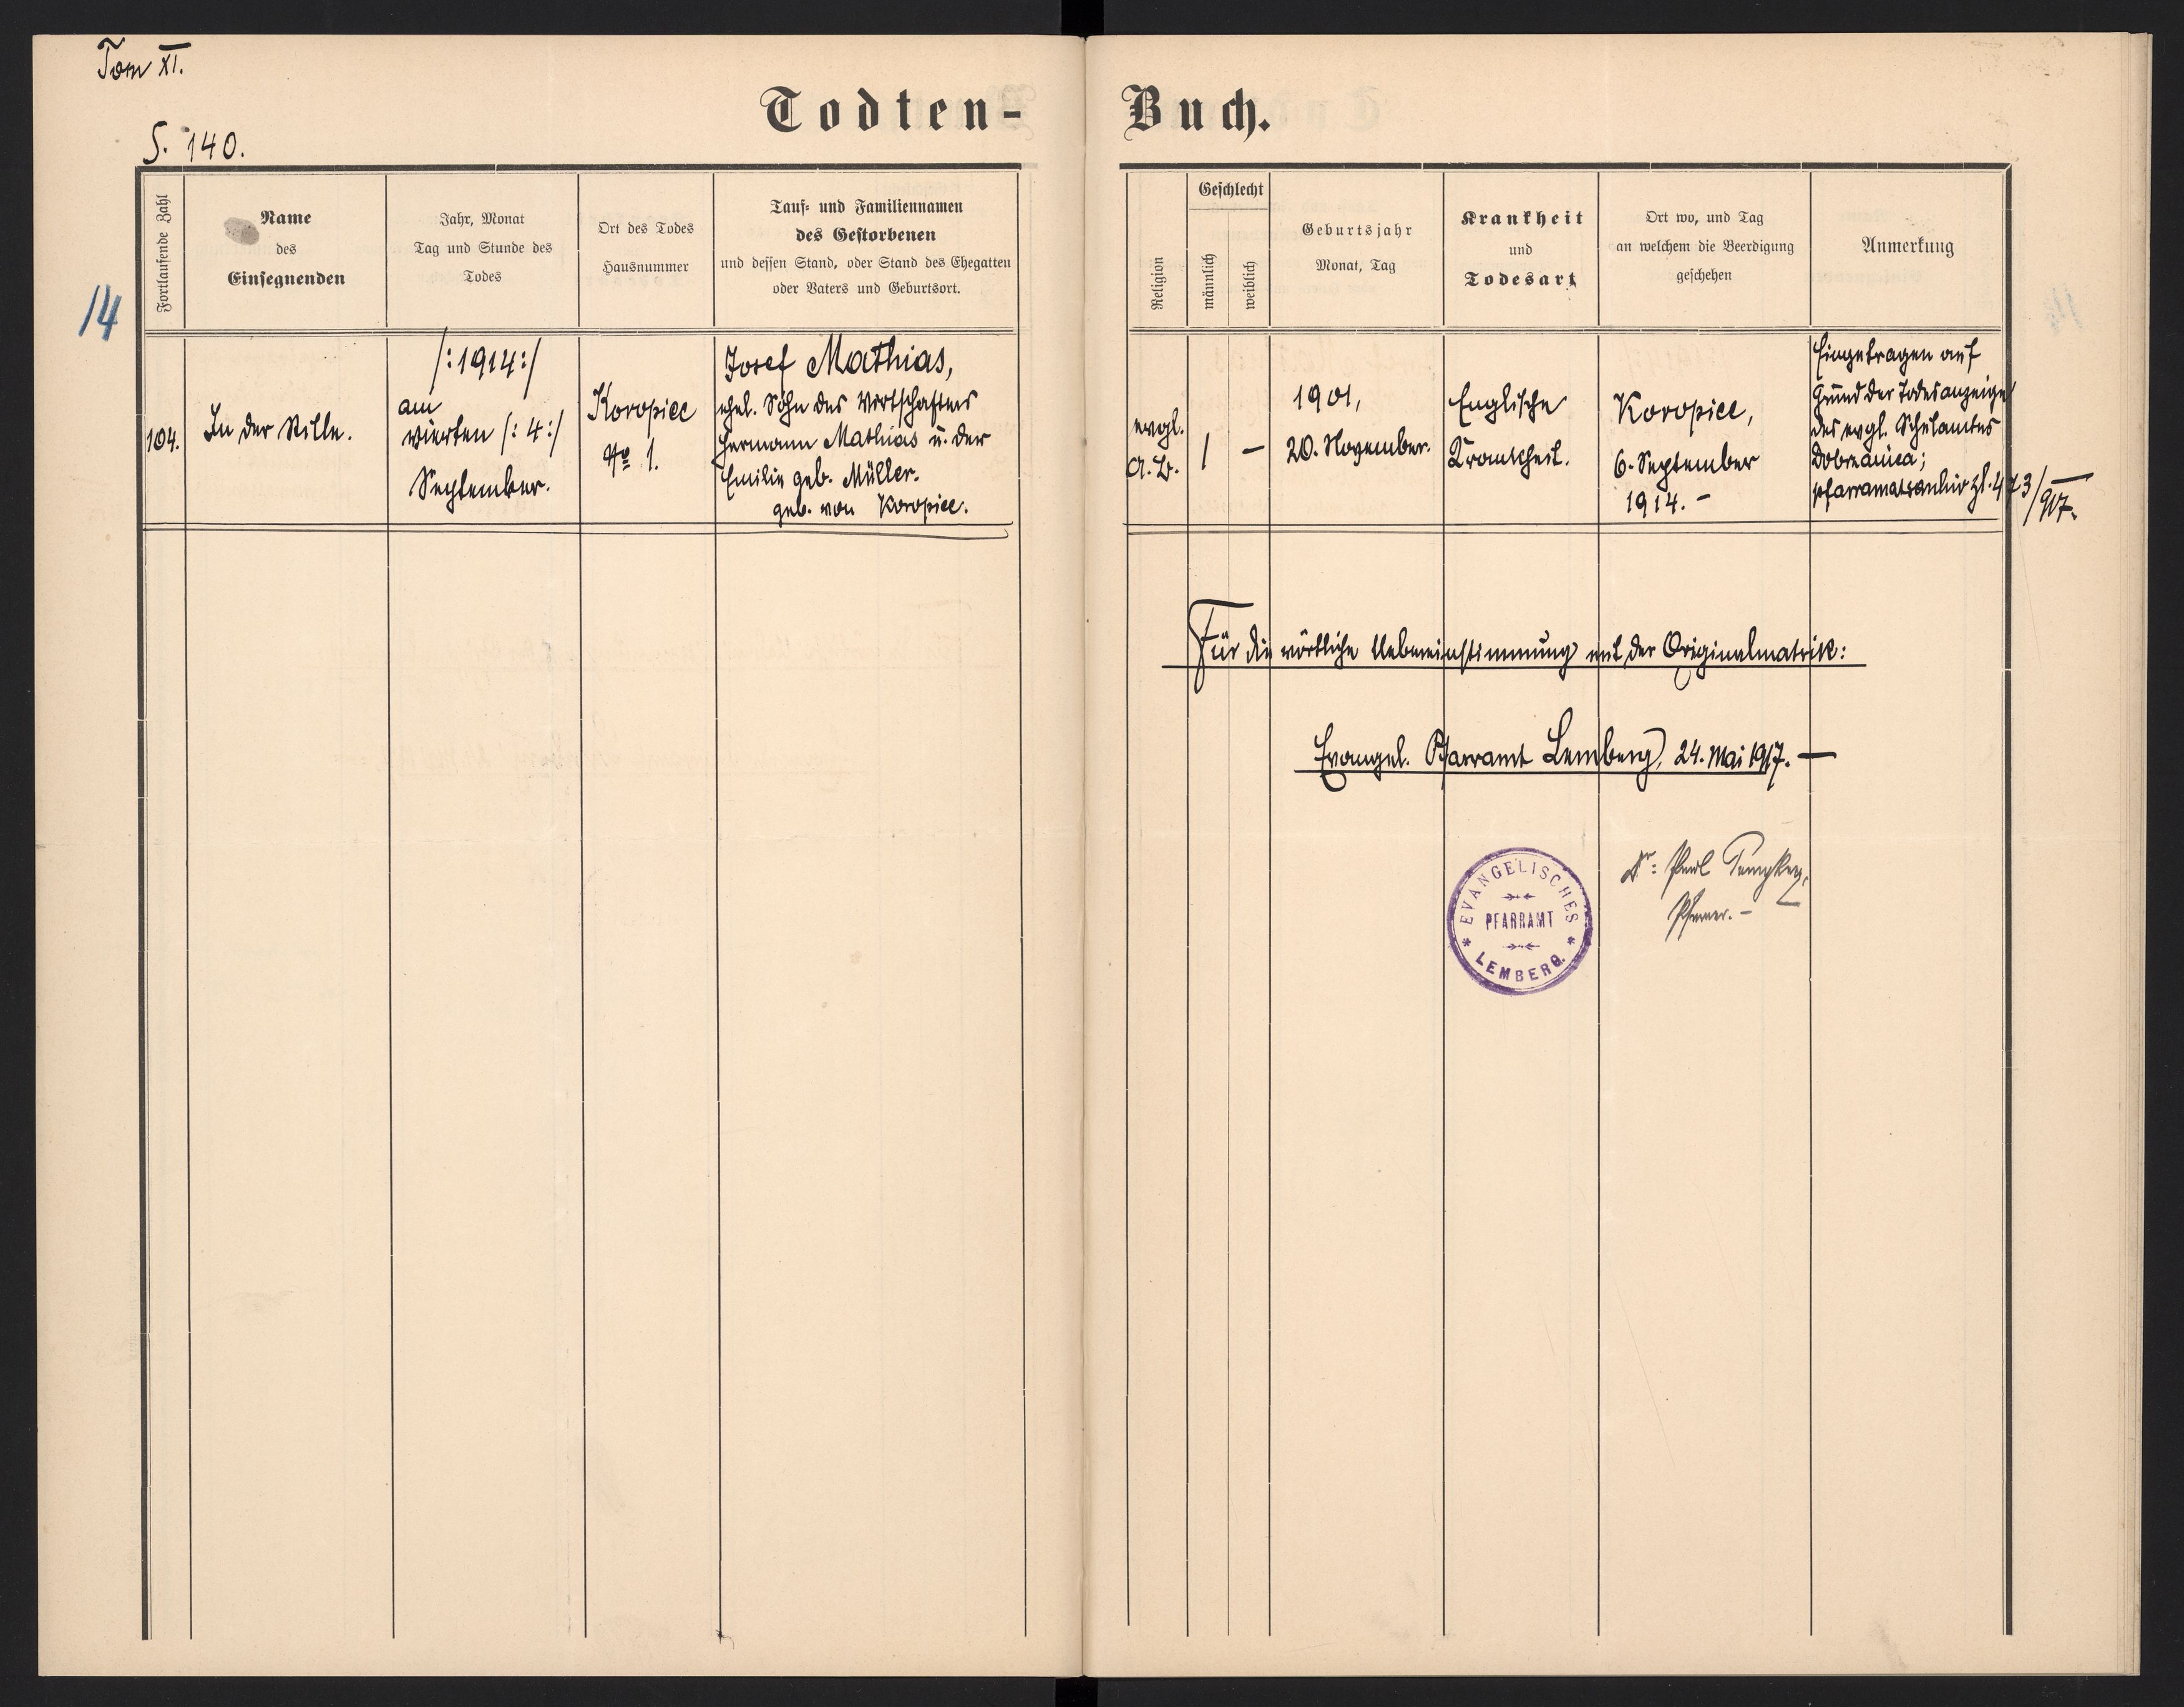 Tom XI.
S. 140.
14
Todten-Buch.
Fortlaufende Zahl
Name
des
Einsegnenden
Jahr, Monat
Tag und Stunde des
Todes
Ort des Todes
Hausnummer
Tauf- und Familiennamen
des Gestorbenen
und dessen Stand, oder Stand des Ehegatten
oder Vaters und Geburtsort.
Religion
Geschlecht
männlich
weiblich
Geburtsjahr
Monat, Tag
Krankheit
und
Todesart
Ort wo, und Tag
an welchem die Beerdigung
geschehen
Anmerkung
104.
In der Stille.
/:1914:/
am
vierten /:4:/
September.
Koropiec
No 1.
Josef Mathias,
ehel. Sohn des Wirtschafters
Hermann Mathias u. der
Emilie geb. Müller.
geb. von Koropiec.
evgl.
A.B.
1
-
1901,
20. November.
Englische
Krankheit.
Koropiec,
6. September
1914. -
Eingetragen auf
Grund der Todesanzeige
des evgl. Schulamtes
Dobrzanica;
Zl. 473/917.
Für die wörtliche Uebereinstimmung mit der Originalmatrik:
Evangel. Pfarramt Lemberg, 24. Mai 1917. -
EVANGELISCHES
PFARRAMT
LEMBERG.
Dr:
Pfarrer. -